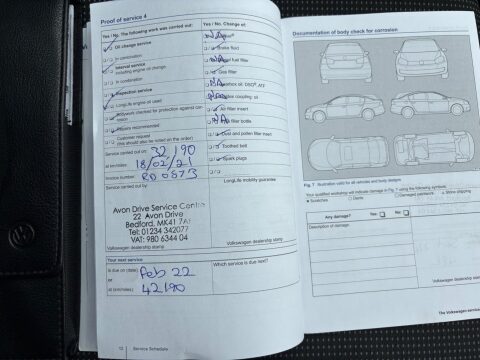 Proof of service 4
Yes / No The following work was carried out:
Oil change service
In combination
Interval service
including engine oil change
In combination
Inspection service
LongLife engine oil used
Bodywork checked for protection against corrosion
Repairs recommended
Customer request
(this should also be noted on the order)
Service carried out on: 32,190
at km/miles: 18/02/21
Invoice number RD 0873
Service carried out by:
Avon Drive Service Centre
22 Avon Drive
Bedford, MK41 7
Tel: 01234 342077
VAT: 980 6344 04
Volkswagen dealership stamp
Your next service
is due on (date) Feb 22
or
at (km/miles) 42190
12 Service Schedule
Yes / No Change of:
NA
Brake fluid
NA fuel filter
Gas filter
NA gearbox oil: DSG®, ATF
NA coupling: oil
Air filter insert
NA filter bottle
Dust and pollen filter insert
Toothed belt
Spark plugs
LongLife mobility guarantee
Volkswagen dealership stamp
Which service is due next?
Documentation of body check for corrosion
Fig. 7 Illustration valid for all vehicles and body designs
Your qualified workshop will indicate damage in Fig. 7 using the following symbols:
Scratches Dents Damaged paintwork Stone chipping
Any damage? Yes No
Description of damage:
Volkswagen dealership
The Volkswagen service